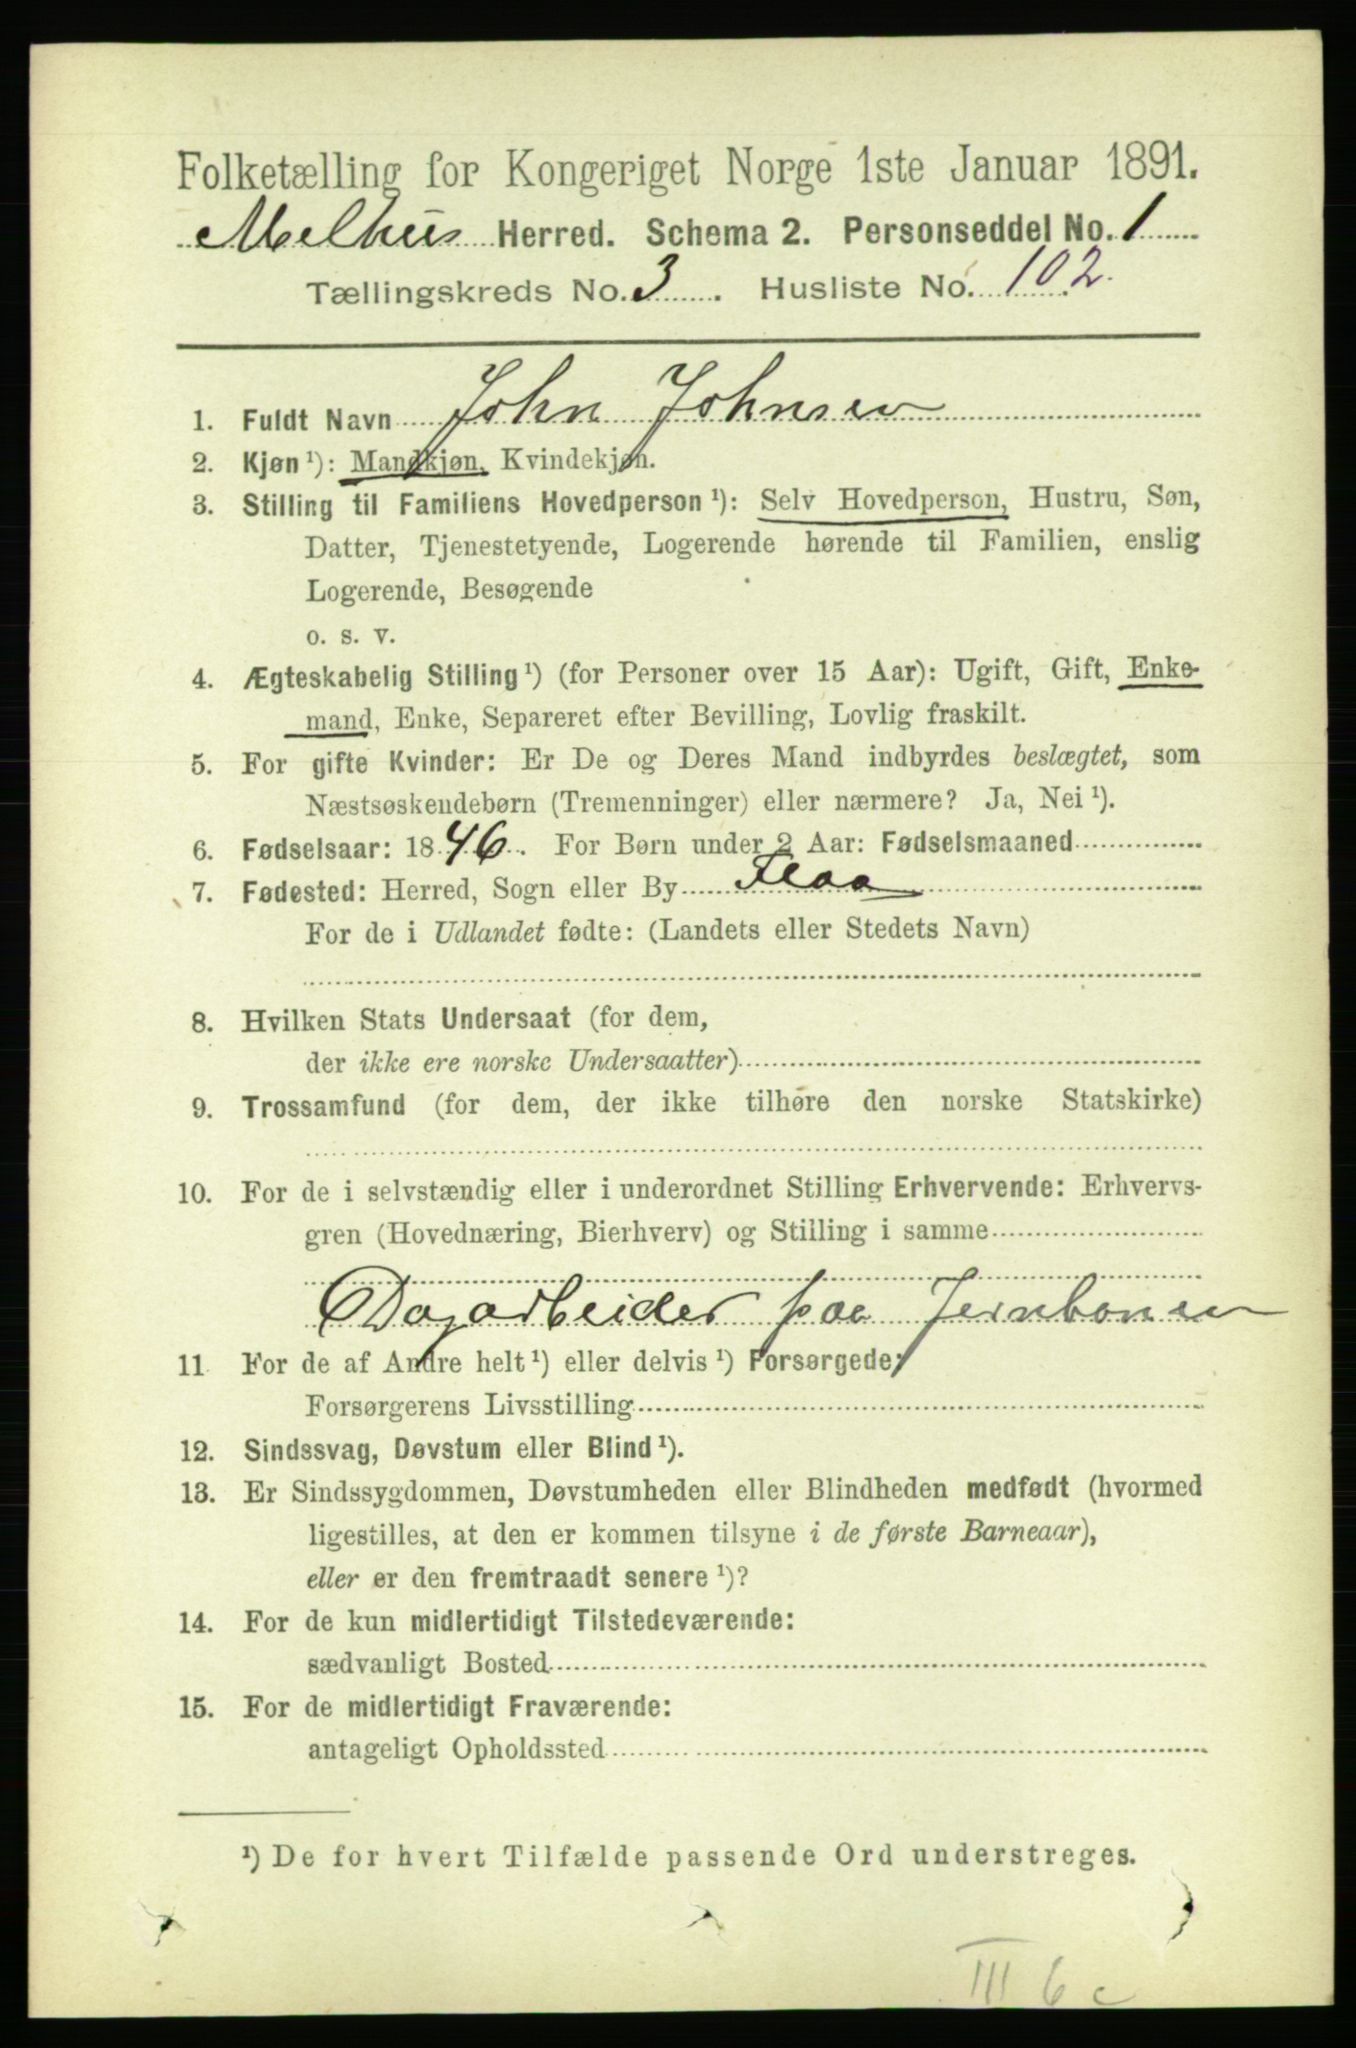 Folketælling for Kongeriget Norge 1ste Januar 1891.
Melhus Herred. Schema 2. Personseddel No. 1
Tællingskreds No. 3. Husliste No. 102.
1. Fuldt Navn John Johnsen
2. Kjøn ¹): Mandkjøn, Kvindekjøn.
3. Stilling til Familiens Hovedperson ¹): Selv Hovedperson, Hustru, Søn,
Datter, Tjenestetyende, Logerende hørende til Familien, enslig
Logerende, Besøgende
o. s. v.
4. Ægteskabelig Stilling ¹) (for Personer over 15 Aar): Ugift, Gift, Enke-
mand, Enke, Separeret efter Bevilling, Lovlig fraskilt.
5. For gifte Kvinder: Er De og Deres Mand indbyrdes beslægtet, som
Næstsøskendebørn (Tremenninger) eller nærmere? Ja, Nei ¹).
6. Fødselsaar: 1846. For Børn under 2 Aar: Fødselsmaaned
7. Fødested: Herred, Sogn eller By Flaa
For de i Udlandet fødte: (Landets eller Stedets Navn)
8. Hvilken Stats Undersaat (for dem,
der ikke ere norske Undersaatter)
9. Trossamfund (for dem, der ikke tilhøre den norske Statskirke)
10. For de i selvstændig eller i underordnet Stilling Erhvervende: Erhvervs-
gren (Hovednæring, Bierhverv) og Stilling i samme
Dagarbeider paa Jernbanen
11 For de af Andre helt ¹) eller delvis ¹) Forsørgede:
Forsørgerens Livsstilling
12. Sindssvag, Døvstum eller Blind ¹).
13. Er Sindssygdommen, Døvstumheden eller Blindheden medfødt (hvormed
ligestilles, at den er kommen tilsyne i de første Barneaar),
eller er den fremtraadt senere ¹)?
14. For de kun midlertidigt Tilstedeværende:
sædvanligt Bosted
15. For de midlertidigt Fraværende:
antageligt Opholdssted
¹) De for hvert Tilfælde passende Ord understreges.
III 6 c